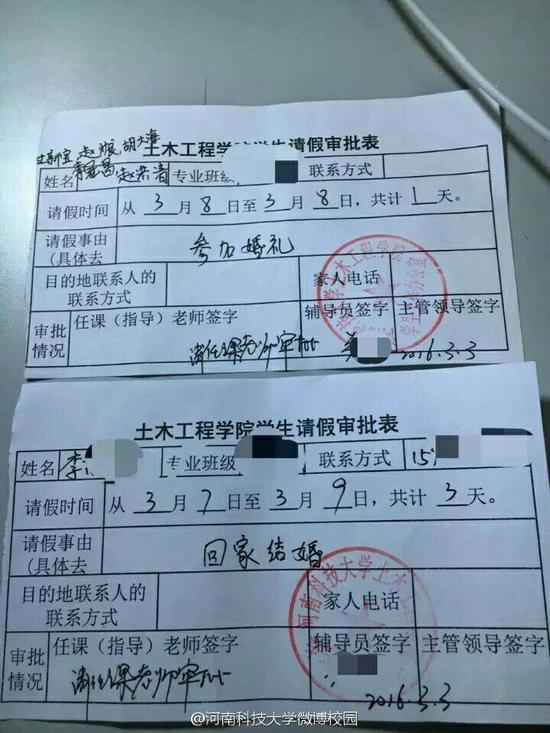 赵 胡大海
土木工程学院学生请假审批表
姓名 专业班级 联系方式
请假时间 从 3 月 8 日至 3 月 8 日，共计 1 天。
请假事由
(具体去
参加婚礼
目的地联系人的
联系方式
家人电话
审批
情况
任课（指导）老师签字
辅导员签字 主管领导签字
请任课老师审批
2016.3.3
土木工程学院学生请假审批表
姓名 李 专业班级 联系方式 15
请假时间 从 3 月 7 日至 3 月 9 日，共计 3 天。
请假事由
(具体去
回家结婚
目的地联系人的
联系方式
家人电话
河南科技大学土木工
审批
情况
任课（指导）老师签字
辅导员签字 主管领导签字
请任课老师审批
2016.3.3
@河南科技大学微博校园